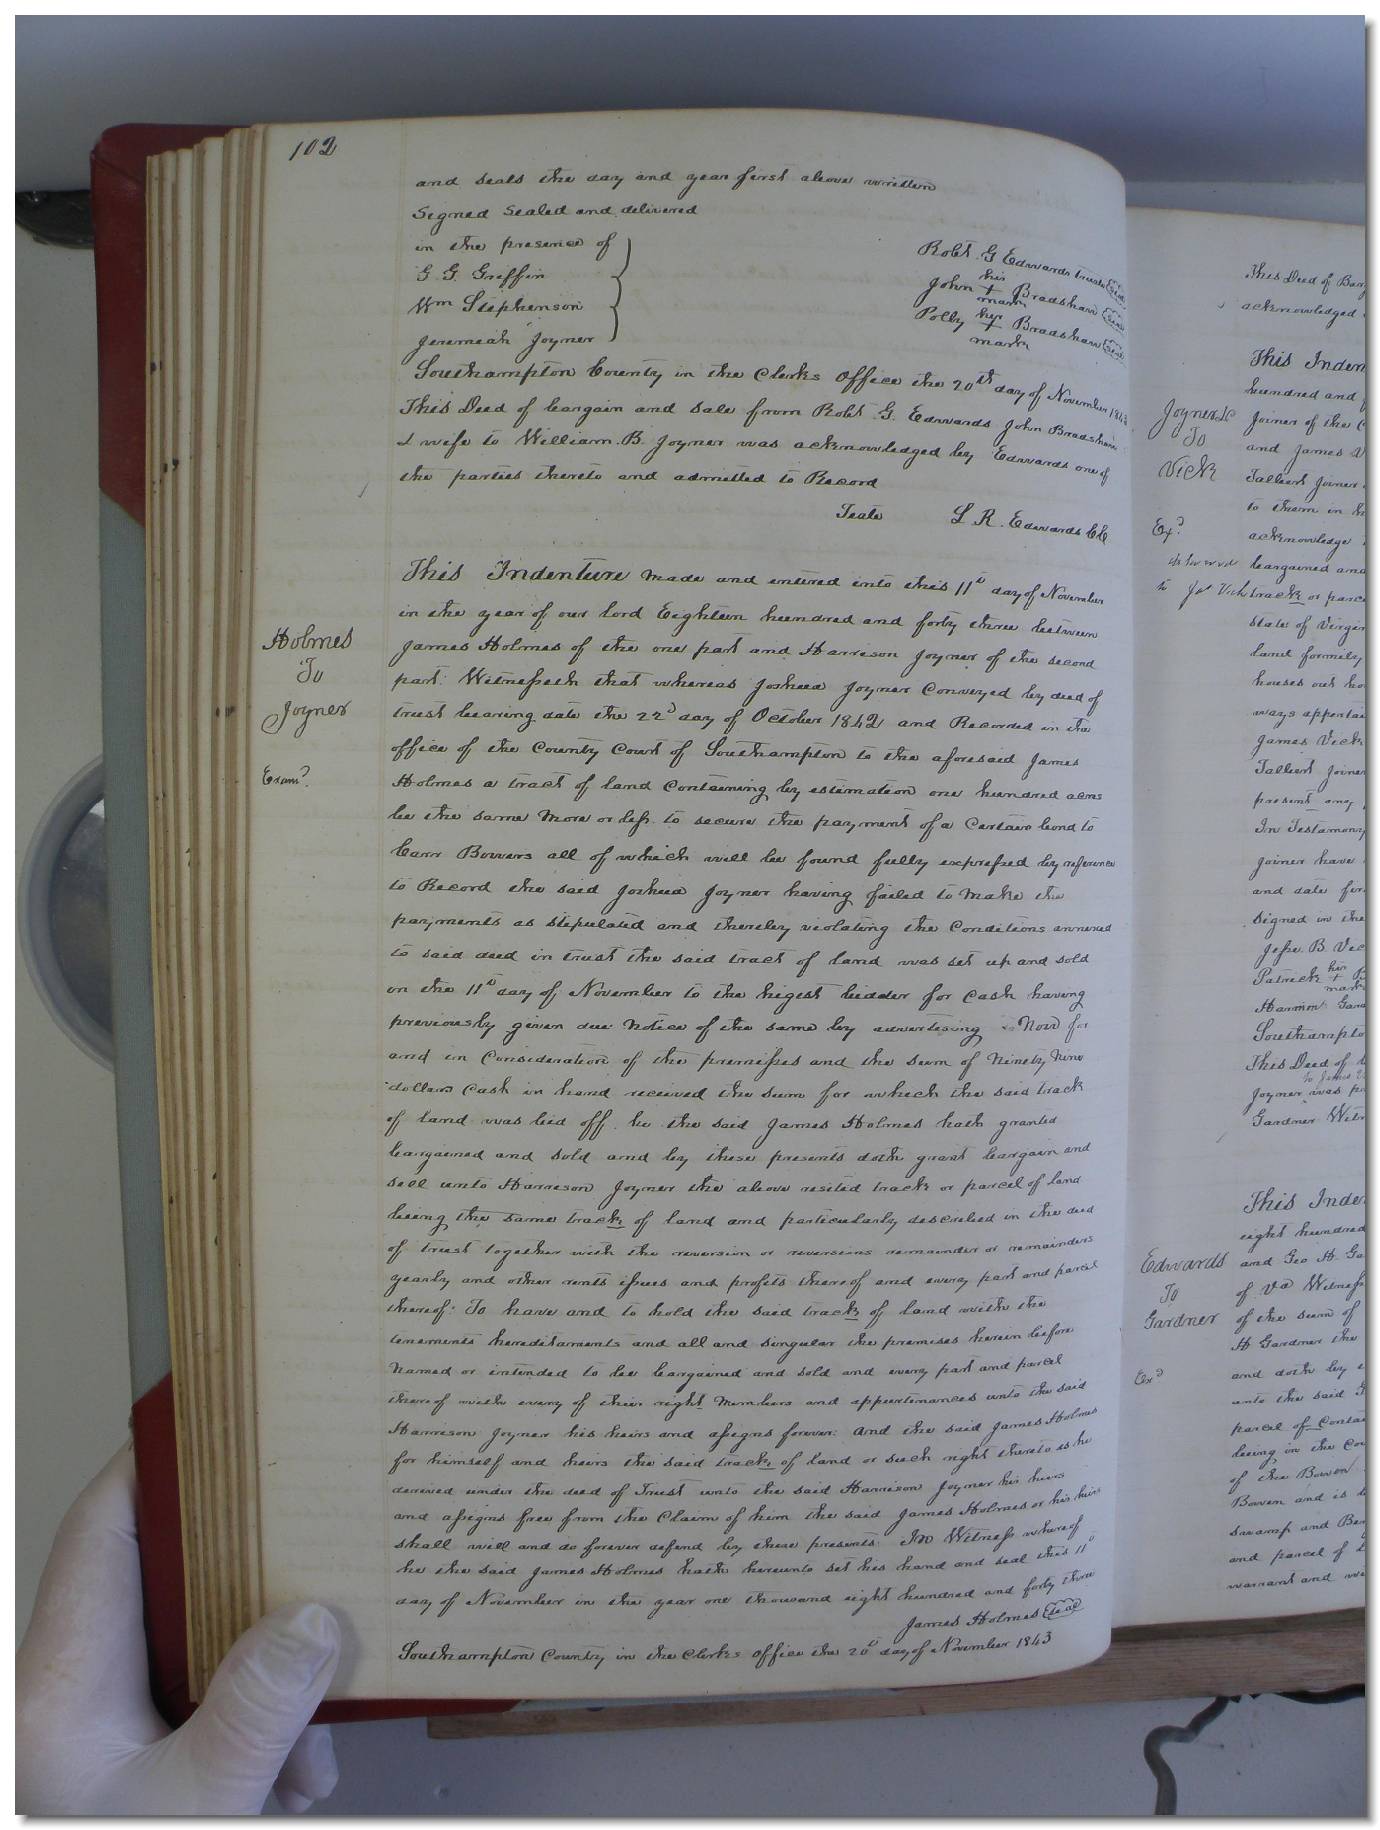 102
and seals the day and year first above written
Signed Sealed and delivered
in the presence of
G. G. Griffin
Wm Stephenson
Jeremiah Joyner
Robt. G Edwards trustee seal
his
John + Bradshaw seal
mark
Polly her + Bradshaw seal
mark
Southampton County in the Clerks Office the 20th day of November 1843
This Deed of bargain and sale from Robt. G. Edwards John Bradshaw
& wife to William B. Joyner was acknowledged by Edwards one of
the parties thereto and admitted to Record
Teste L. R. Edwards CC
Holmes
To
Joyner
Examd
This Indenture made and entered into this 11th day of November
in the year of our lord Eighteen hundred and forty three between
James Holmes of the one part and Harrison Joyner of the second
part: Witnesseth that whereas Joshua Joyner Conveyed by deed of
trust bearing date the 22d day of October 1842 and Recorded in the
office of the County Court of Southampton to the aforesaid James
Holmes a tract of land Containing by estimation one hundred acres
be the same More or less to secure the payment of a Certain bond to
Carr Bowers all of which will be found fully expressed by reference
to Record the said Joshua Joyner having failed to Make the
payments as stipulated and thereby violating the Conditions annexed
to said deed in trust the said tract of land was set up and sold
on the 11th day of November to the higest bidder for Cash having
previously given due Notice of the same by advertising Now for
and in Consideration of the premisses and the sum of Ninety Nine
dollars Cash in hand received the sum for which the said track
of land was bid off he the said James Holmes hath granted
bargained and sold and by these presents doth grant bargain and
sell unto Harrison Joyner the above resited track or parcel of land
being the same track of land and particularly described in the deed
of trust together with the reversion or reversions remainder or remainders
yearly and other rents issues and profits thereof and every part and parcel
thereof: To have and to hold the said track of land with the
tenements hereditaments and all and singular the premises herein before
Named or intended to be bargained and sold and every part and parcel
thereof with every of their right Members and appurtenances unto the said
Harrison Joyner his heirs and assigns forever: and the said James Holmes
for himself and heirs the said track of land or such right thereto as he
derived under the deed of Trust unto the said Harrison Joyner his heirs
and assigns free from the Claim of him the said James Holmes or his heirs
shall will and do forever defend by these presents. In Witness whereof
he the said James Holmes hath hereunto set his hand and seal this 11th
day of November in the year one thousand eight hundred and forty three
James Holmes seal
Southampton County in the Clerks office the 20th day of November 1843
This Deed of
acknowledged
This Inden
hundred and
Joyner &c
To
Vick
Exd
Joiner of the
and James V
Talbert Joiner
to them in
acknowledge
bargained and
track or parce
state of Virgin
land formely
houses out ho
ways appertai
James Vick
Talbert Joiner
present any
In Testamony
Joiner have
and date fir
Signed in the
Jesse B. Vic
Patrick his +
mark
Harmon Gard
Southampto
This Deed of
Joyner was
Gardner Witn
This Inde
eight hundred
Edwards
To
Gardner
Exd
and Geo H Ga
of Va Witness
of the sum of
H Gardner the
and doth by
unto the said
parcel of Contai
being in the Cou
of the Bowen
Bowen and is
swamp and Ben
and parcel of
warrant and